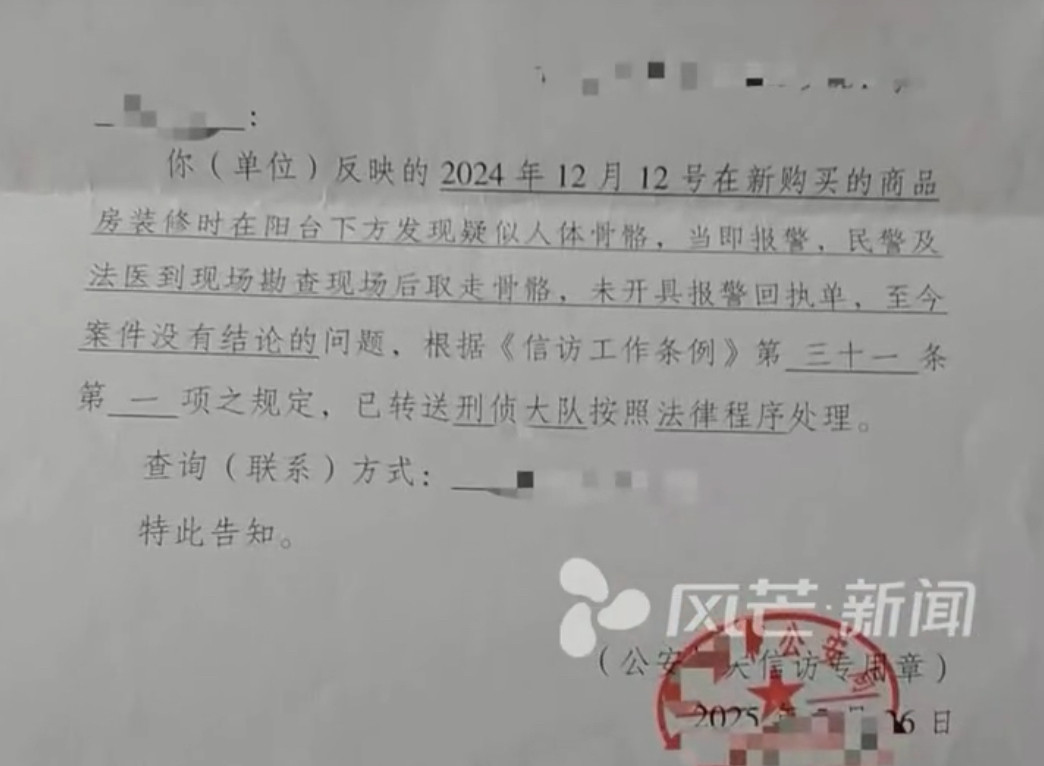 ：
你（单位）反映的 2024 年 12 月 12 号在新购买的商品
房装修时在阳台下方发现疑似人体骨骼，当即报警，民警及
法医到现场勘查现场后取走骨骼，未开具报警回执单，至今
案件没有结论的问题，根据《信访工作条例》第 三十一 条
第 一 项之规定，已转送刑侦大队按照法律程序处理。
查询（联系）方式：
特此告知。
风芒·新闻
公安局
（公安 信访专用章）
2025 年 月 16 日